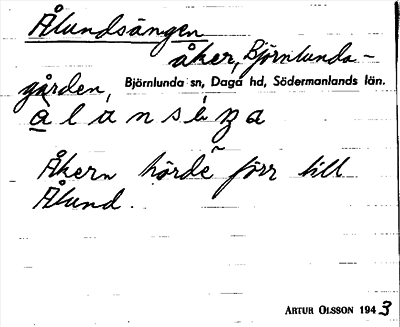 Ålundsängen
åker, Björnlunda-
gården, Björnlunda sn, Daga hd, Södermanlands län.
Åkern hörde förr till
Ålund.
ARTUR OLSSON 1943